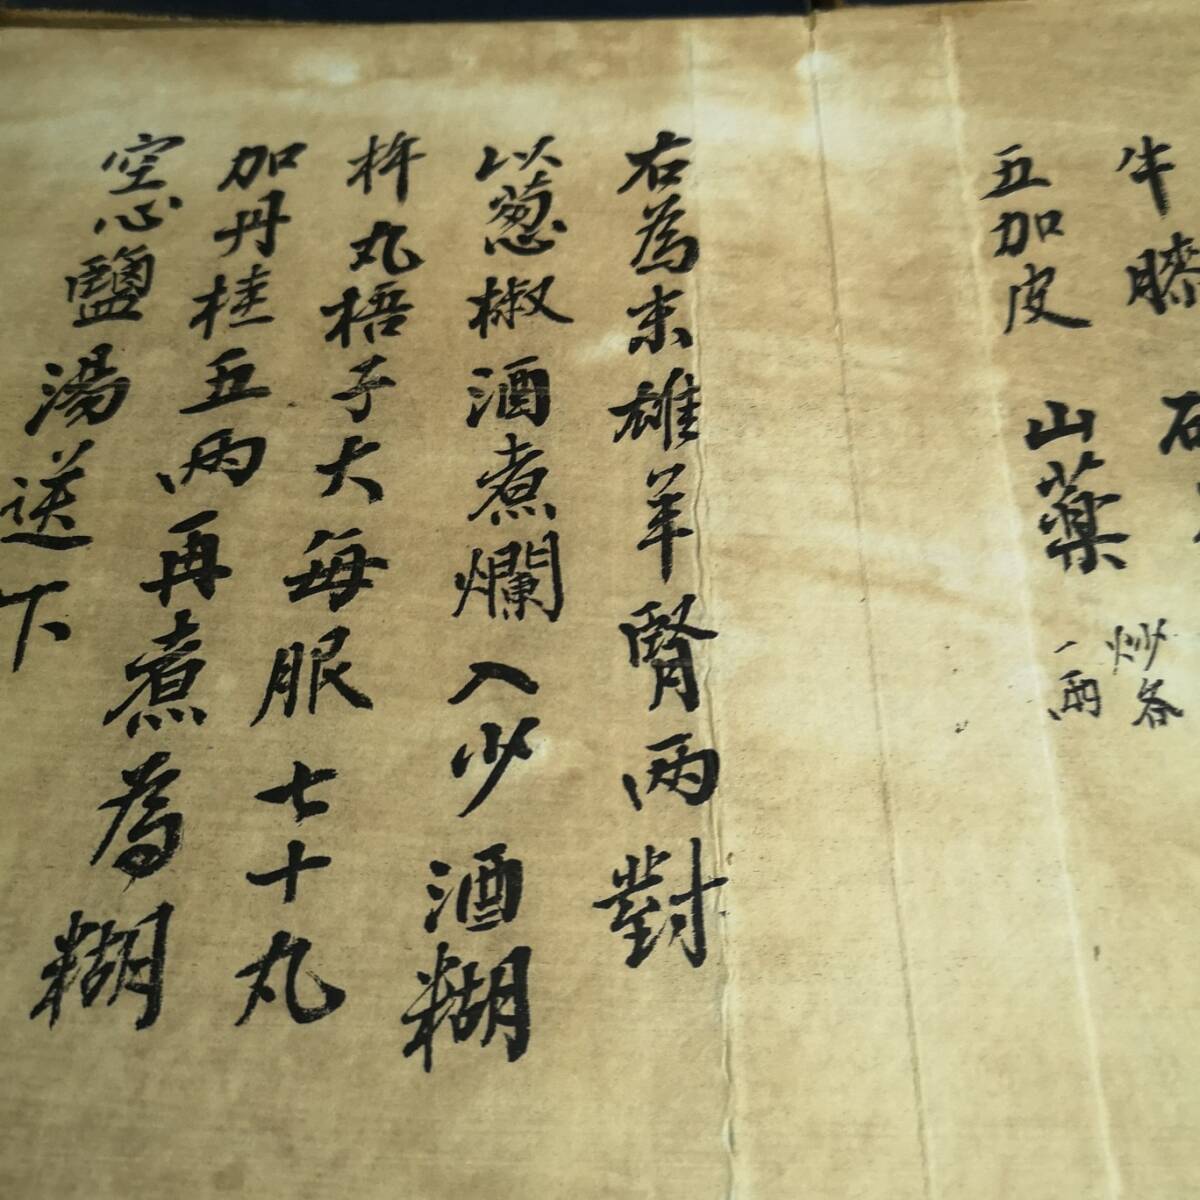 牛膝
五加皮 山藥 炒各一兩
右為末雄羊腎兩對
以葱椒酒煮爛入少酒糊
杵丸梧子大每服七十丸
加丹桂五兩再煮為糊
空心鹽湯送下